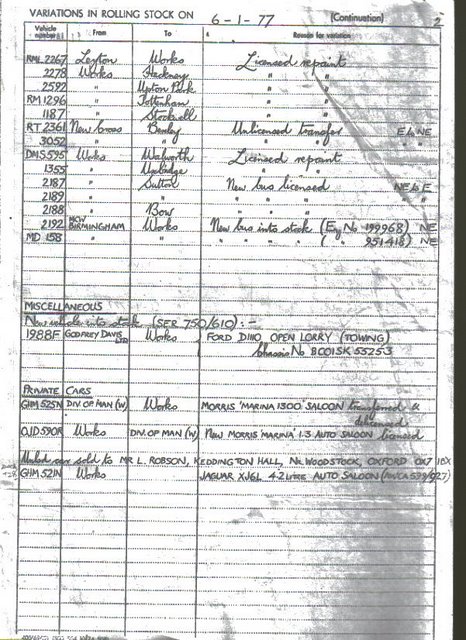 VARIATIONS IN ROLLING STOCK ON 6-1-77 (Continuation) 2
Vehicle number From To Reason for variation
RML 2267 Leyton Works Licensed repaint
2278 Works Hackney " "
2592 " Upton Park " "
RM 1296 " Tottenham " "
1187 " Stockwell " "
RT 2361 New Cross Bexley Unlicensed transfer E to NE
3052 " " " " "
DMS 595 Works Walworth Licensed repaint
1355 " Uxbridge " "
2187 " Sutton New bus licensed NE to E
2189 " " " " "
2188 " Bow " " "
2192 MCW BIRMINGHAM Works New bus into stock (Eng No 199968) NE
MD 158 " " " " " ( " 951418) NE
MISCELLANEOUS
New vehicle into stock (SER 750/610) :-
1988F GODFREY DAVIS LTD Works FORD D1110 OPEN LORRY (TOWING)
Chassis No BC01SK 55253
PRIVATE CARS
GHM 525N DIV. OP MAN (W) Works MORRIS 'MARINA 1300' SALOON transferred &
delicensed
OJD 590R Works DIV. OP MAN (W) New MORRIS 'MARINA' 1.3 AUTO SALOON licensed
car sold to MR L. ROBSON, KEDDINGTON HALL, Nr WOODSTOCK, OXFORD OX7 1BX
GHM 521N Works JAGUAR XJ6L 4.2 Litre AUTO SALOON